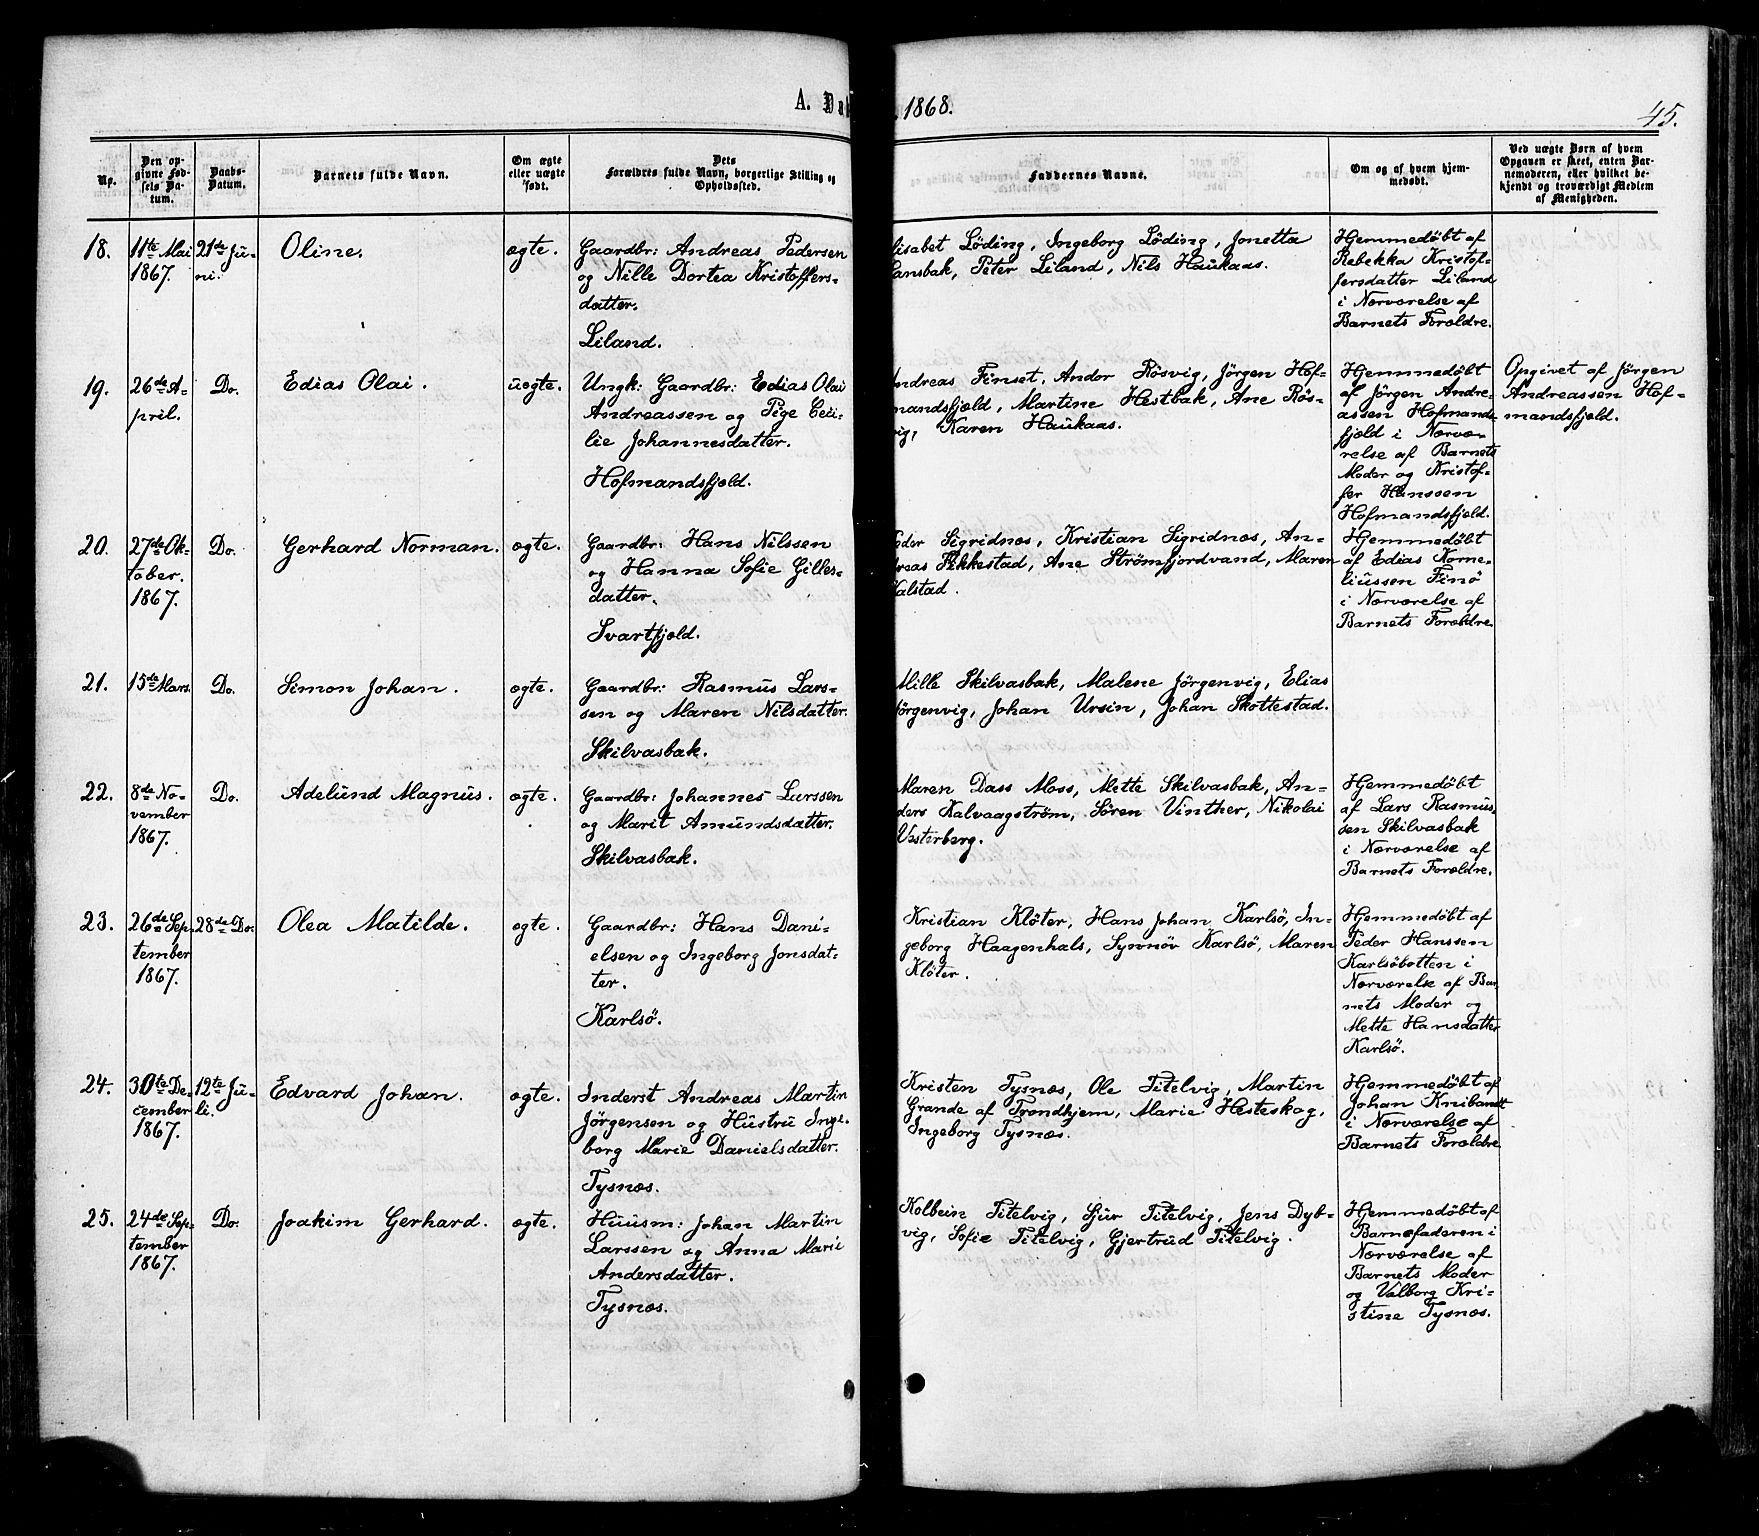 A. Døb
1868.
45.
No.
Den op-
givne Fød-
sels Da-
tum.
Daabs-
Datum.
Barnets fulde Navn.
Om ægte
eller uægte
født.
Dets
Forældres fulde Navn, borgerlige Stilling og
Opholdssted.
Faddernes Navne.
Om og af hvem hjem-
medøbt.
Ved uægte Børn af hvem
Opgaven er skeet, enten Bar-
nemoderen, eller hvilket be-
kjendt og troværdigt Medlem
af Menigheden.
18.
11te Mai
1867.
21de Ju-
ni.
Oline.
ægte.
Gaardbr: Andreas Pedersen
og Nille Dortea Kristoffers-
datter.
Liland.
lisabet Löding, Ingeborg Löding, Jonetta
ansbak, Peter Liland, Nils Haukaas.
Hjemmedøbt af
Rebekka Kristof-
fersdatter Liland
i Nærværelse af
Barnets Forældre.
19.
26de A-
pril.
Do.
Edias Olai.
uægte.
Ungk: Gaardbr: Edias Olai
Andreassen og Pige Ceci-
lie Johannesdatter.
Hofmandsfjeld.
Andreas Finset, Andor Rösvig, Jörgen Hof-
mandsfjæld, Martine Hestbak, Ane Rös-
vig, Karen Haukaas.
Hjemmedøbt
af Jörgen Andre-
assen Hofmands-
fjeld i Nærvæ-
relse af Barnets
Moder og Kristof-
fer Hanssen
Hofmandsfjeld.
Opgivet af Jörgen
Andreassen Hof-
mandsfjeld.
20.
27de Ok-
tober.
1867.
Do.
Gerhard Norman.
ægte.
Gaardbr: Hans Nilssen
og Hanna Sofie Gilles-
datter.
Svartfjeld.
eder Sigridnæs, Kristian Sigridnæs, An-
dreas Fikkestad, Ane Strömfjordvand, Maren
Kalstad.
Hjemmedøbt
af Edias Korne-
liussen Finö
i Nærværelse af
Barnets Forældre.
21.
15de Mars.
Do.
Simon Johan.
ægte.
Gaardbr: Rasmus Lars-
sen og Maren Nilsdatter.
Skilvasbak.
Mille Skilvasbak, Malene Jörgenvig, Elias
Jörgenvig, Johan Ursin, Johan Skottestad.
22.
8de No-
vember
1867.
Do.
Adelund Magnus.
ægte.
Gaardbr: Johannes Larssen
og Marit Amundsdatter.
Skilvasbak.
Maren Dass Moss, Mette Skilvasbak, An-
ders Kalvaagström, Sören Vinther, Nikolai
Vesterberg.
Hjemmedøbt
af Lars Rasmus-
sen Skilvasbak
i Nærværelse af
Barnets Forældre.
23.
26de Sep-
tember
1867.
28de Do.
Olea Matilde.
ægte.
Gaardbr: Hans Dani-
elsen og Ingeborg Jonsdat-
ter.
Karlsö.
Kristian Klöter, Hans Johan Karlsö, In-
geborg Haagenhals, Synnöv Karlsö, Maren
Klöter.
Hjemmedøbt af
Peder Hanssen
Karlsöbotten i
Nærværelse af Bar-
nets Moder og
Mette Hansdatter
Karlsö.
24.
30te De-
cember
1867.
12te Ju-
li.
Edvard Johan.
ægte.
Inderst Andreas Martin
Jörgensen og Hustru Inge-
borg Marie Danielsdatter.
Tysnæs.
Kristen Tysnæs, Ole Titelvig, Martin
Grande af Trondhjem, Marie Hesteskog,
Ingeborg Tysnæs.
Hjemmedøbt af
Johan Knibandt
i Nærværelse af
Barnets Forældre
25.
24de Sep-
tember
1867.
Do.
Joakim Gerhard.
ægte.
Huusm: Johan Martin
Larssen og Anna Marie
Andersdatter.
Tysnæs.
Kolbein Titelvig, Sjur Titelvig, Jens Dyb-
vig, Sofie Titelvig, Gjertrud Titelvig.
Hjemmedøbt af
Barnefaderen i
Nærværelse af
Barnets Moder
og Valborg Kri-
stine Tysnæs.